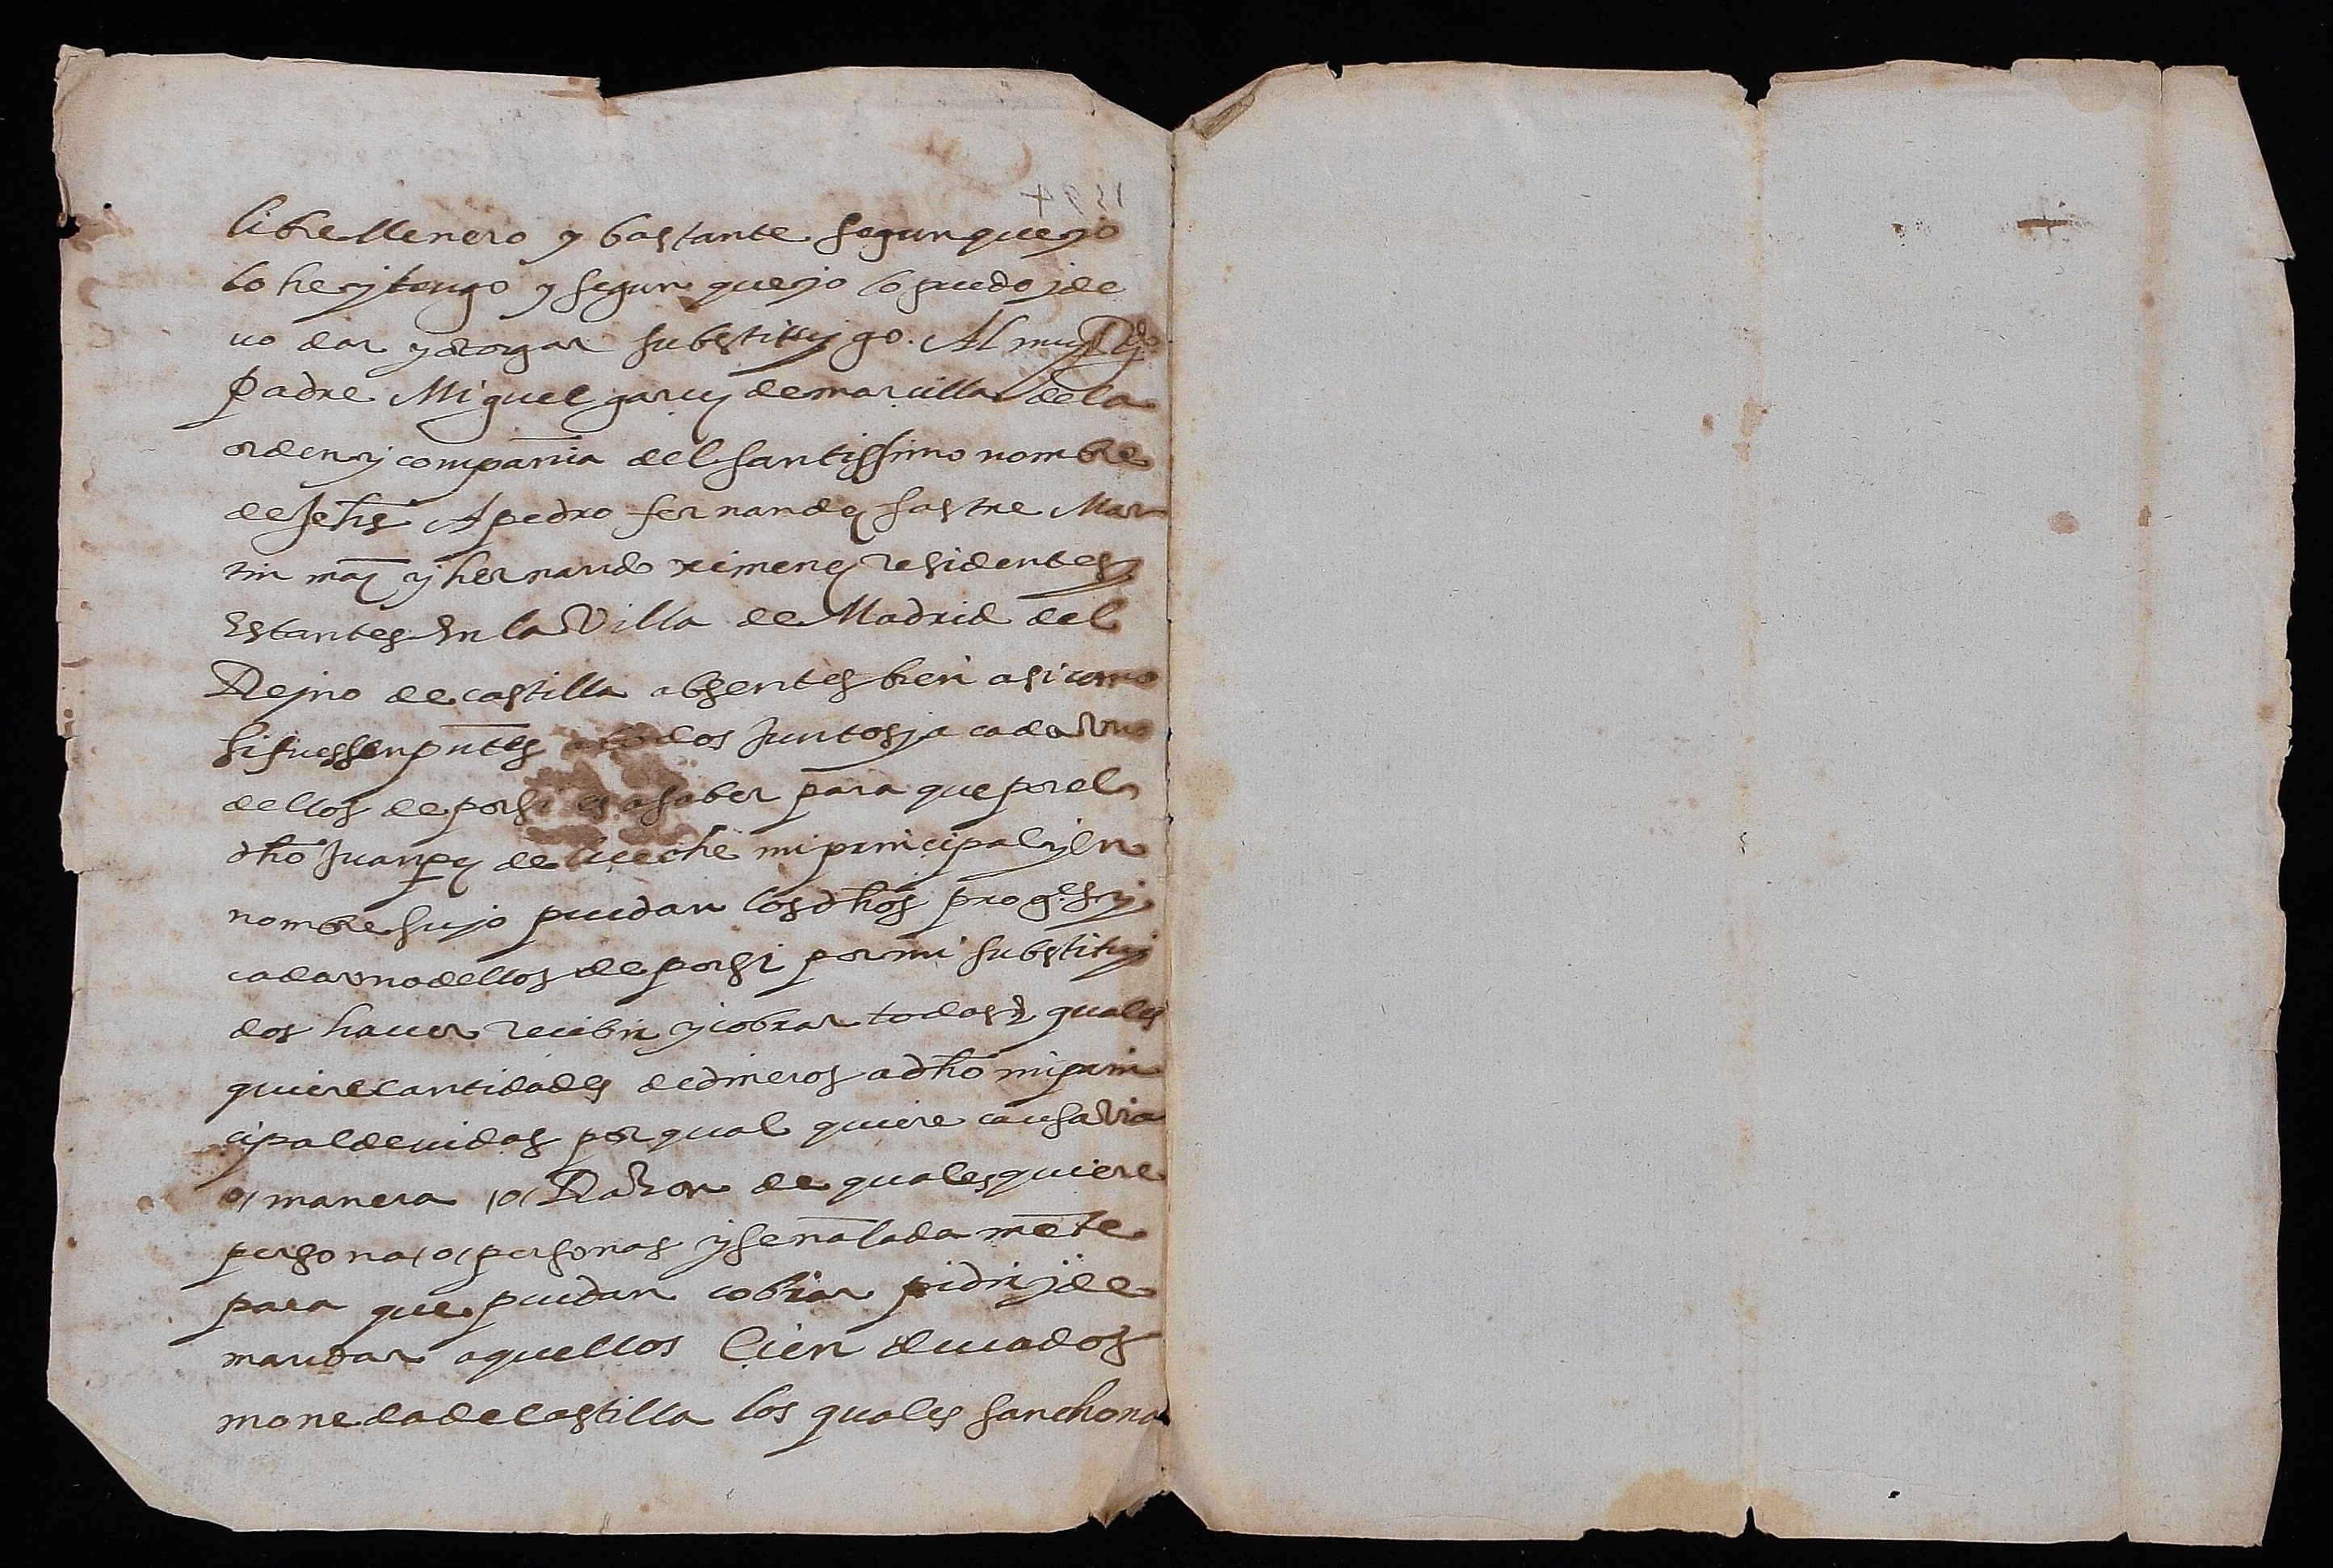 libre llenero y bastante segun que yo
lo he y tengo y segun que yo lo puedo y de
uo dar y otorgar substituygo. Al muy Rdo
padre Miguel garcy de marcilla de la
orden y compañia del santissimo nombre
de Jehs A pedro fernandez sastre Mar
tin mrz y hernando ximenez residentes y
Estantes En la Villa de Madrid del
Reyno de castilla absentes bien asi como
si fuessen pntes a todos Juntos y a cada Vno
dellos de por si es a saber para que por el
dho Juan pz de mi principal y En
nombre suyo puedan los dhos pro.es y
cada vno dellos de por si por mi substituy
dos hauer recibir y cobrar todas y quales
quiere cantidades de dineros a dho mi prin
cipal deuidas por qual quiere causa Via
o manera o Razon de quales quiere
persona o personas y señalada mēte
para que puedan cobrar pidir y de
mandar aquellos Cien ducados
moneda de castilla los quales sancho na